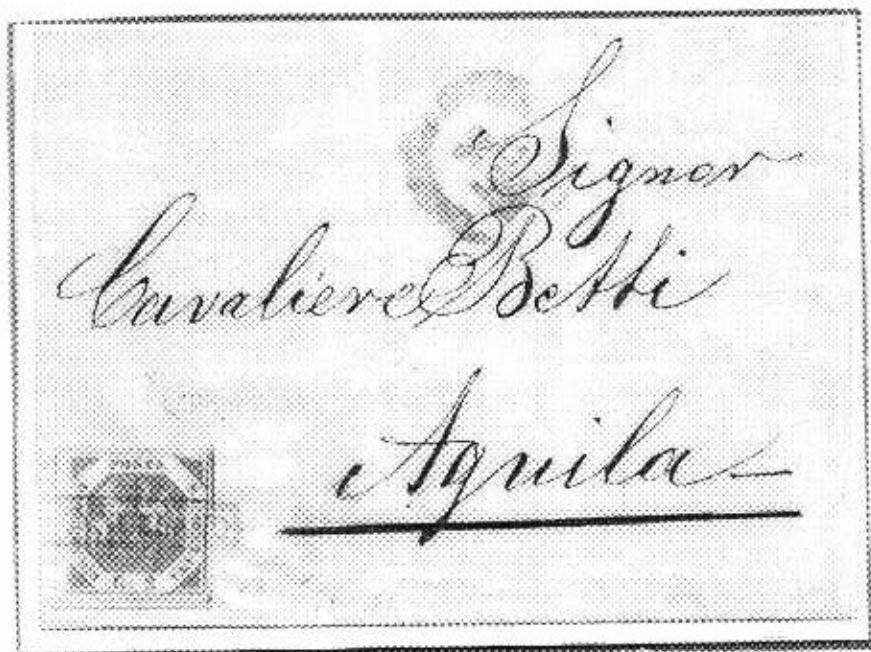 Signor
Cavaliere Betti
Aquila
POSTA